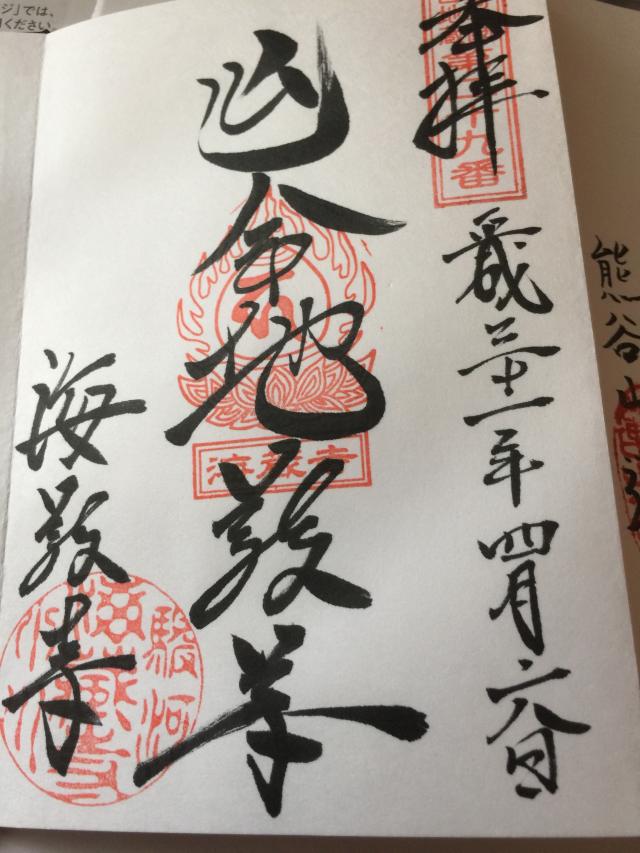 熊谷山
奉拝
九番
平成三十一年四月六日
延命地蔵尊
海蔵寺
海蔵寺
駿河
ジ」では、
ください